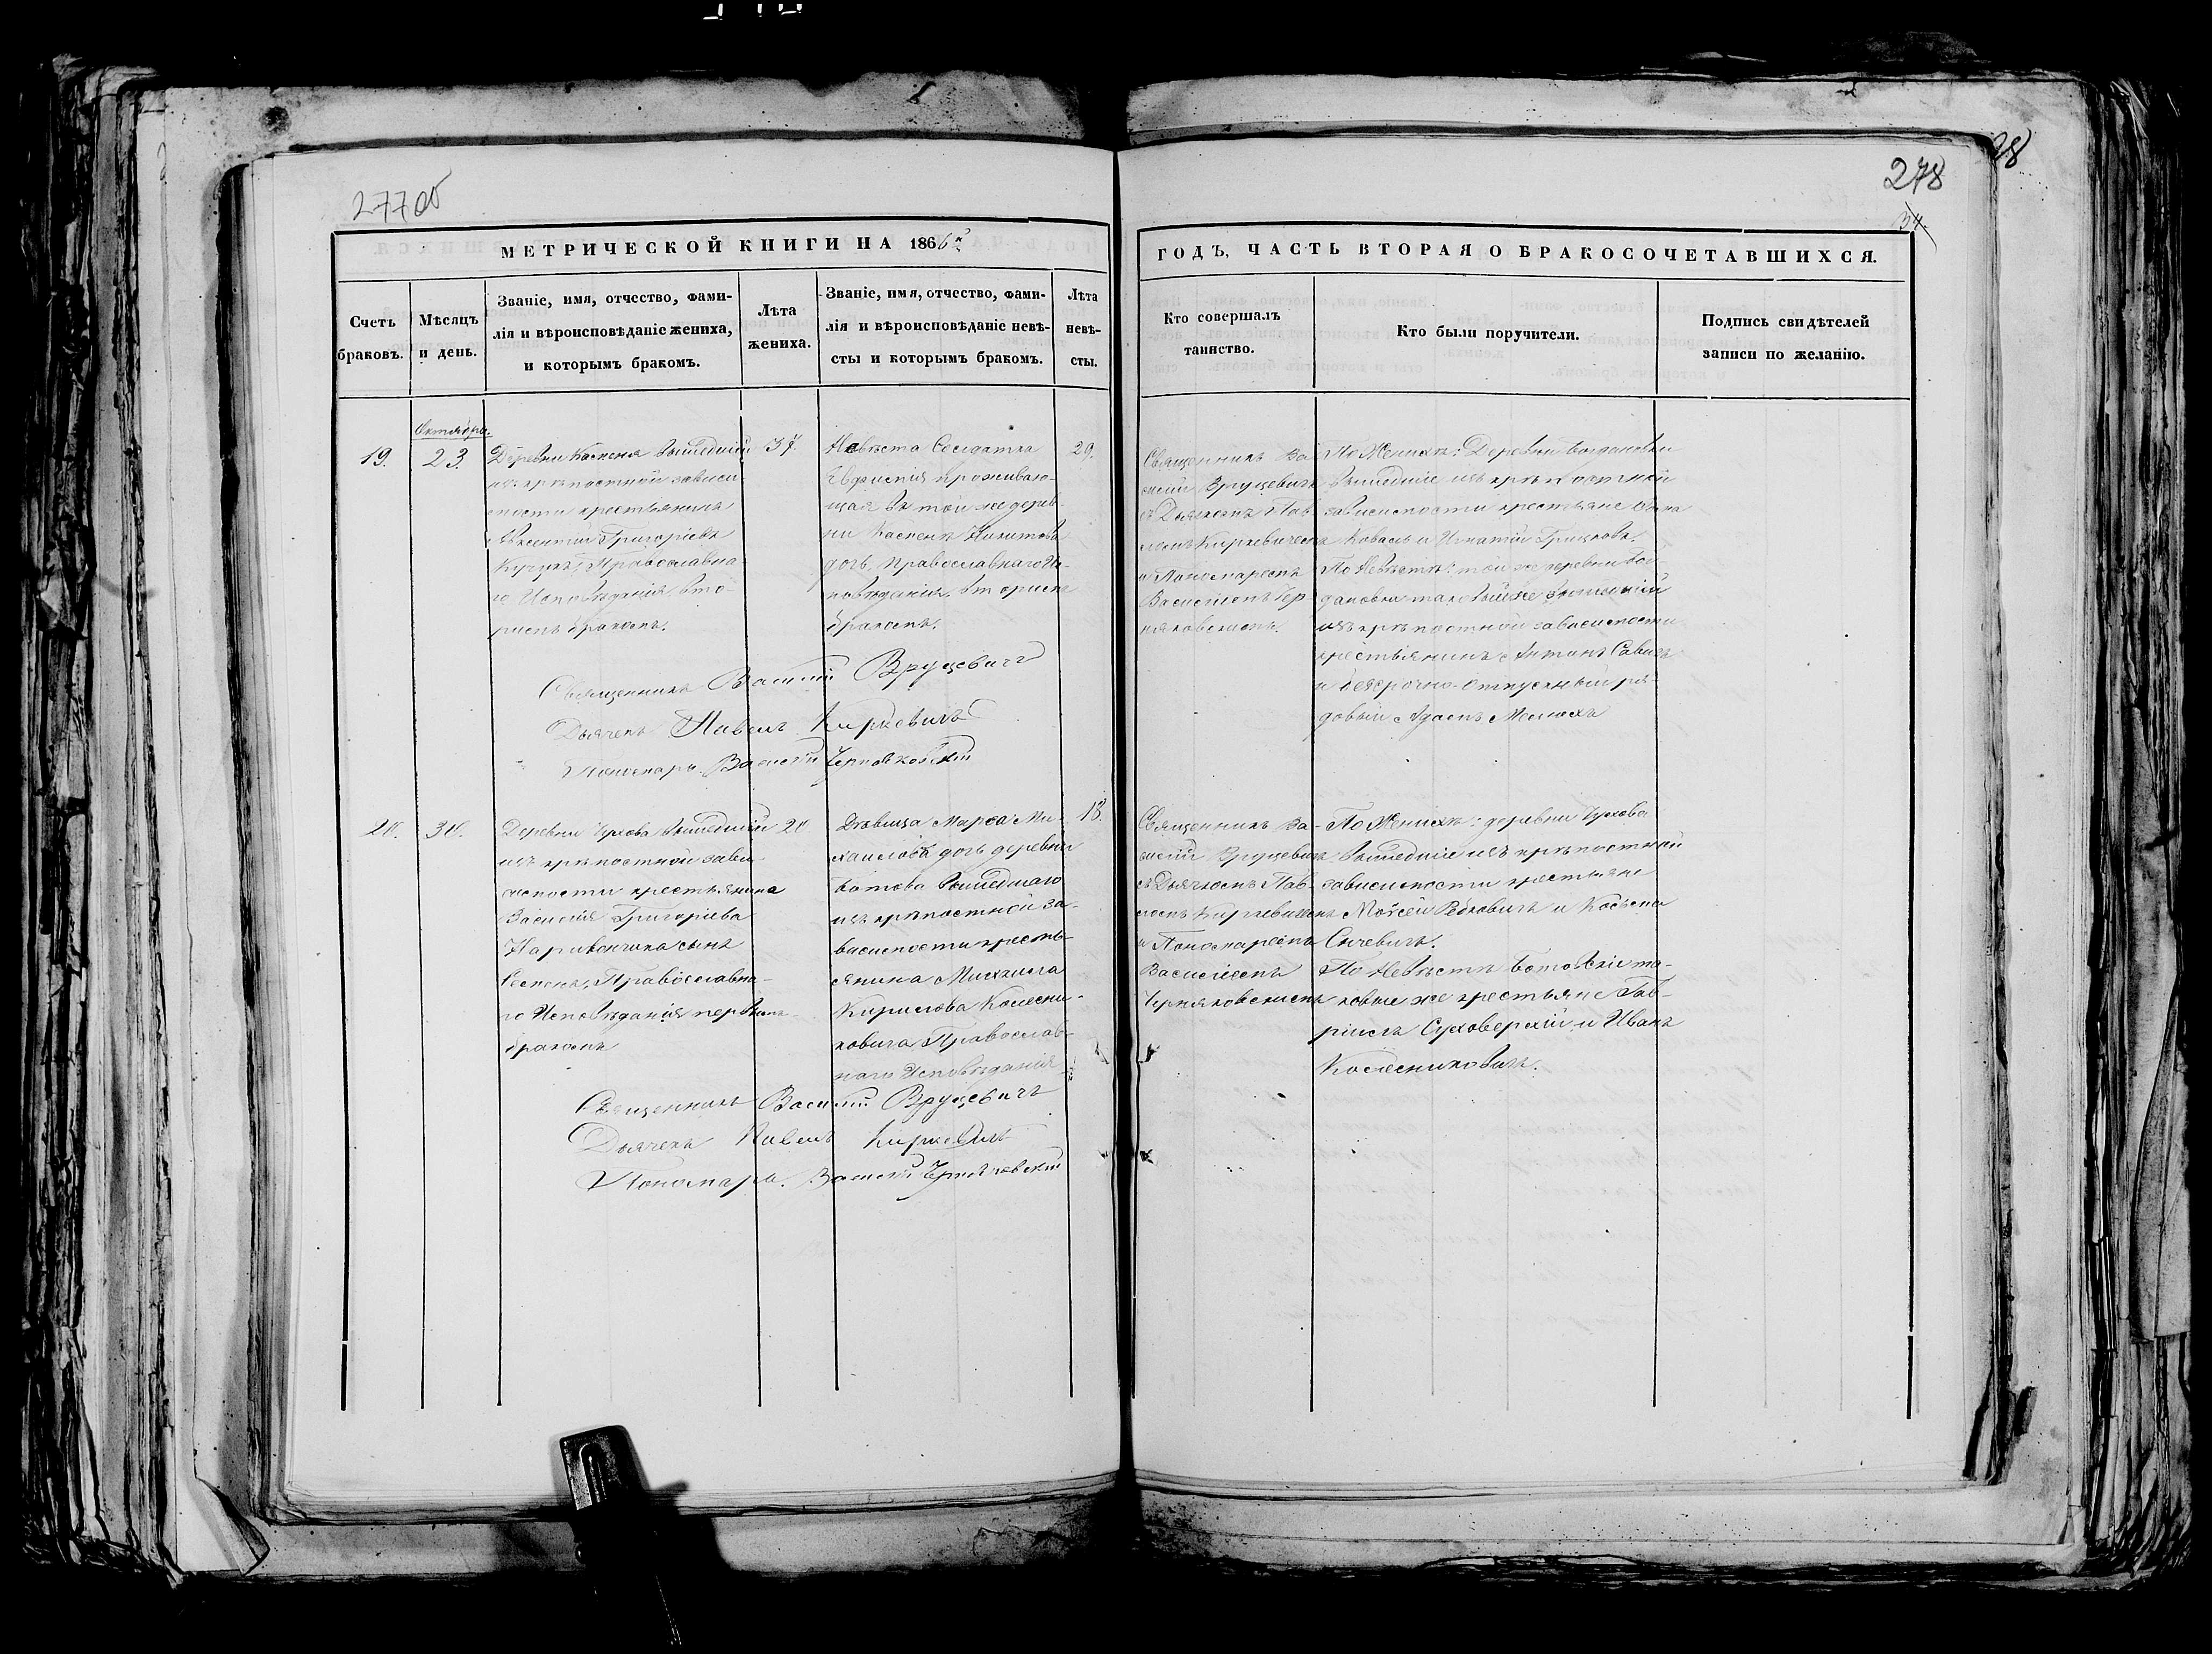 277об
278
34.
МЕТРИЧЕСКОЙ КНИГИ НА 1866й
ГОДЪ, ЧАСТЬ ВТОРАЯ О БРАКОСОЧЕТАВШИХСЯ.
Счетъ
браковъ.
Мѣсяцъ
и день.
Званіе, имя, отчество, фами-
лія и вѣроисповѣданіе жениха,
и которымъ бракомъ.
Лѣта
жениха.
Званіе, имя, отчество, фами-
лія и вѣроисповѣданіе невѣ-
сты и которымъ бракомъ.
Лѣта
невѣ-
сты.
Кто совершалъ
таинство.
Кто были поручители.
Подпись свидѣтелей
записи по желанію.
19.
Октября.
23.
Деревни Каменя вышедшій
изъ крѣпостной зависи
мости крестьянинъ
Авксентій Григоріевъ
Православна
го Исповѣданія, вто-
рымъ бракомъ.
Невѣста Солдатка
Евфимія проживаю-
щая въ той же дерев
ни Никитова
дочь, Православнаго Ис-
повѣданія, вторымъ
бракомъ.
29.
Священникъ Ва-
силій Вруцевичъ
съ Дьячкомъ Пав-
ломъ Киркевичемъ
и Пономаремъ
Василіемъ Чер
няковскимъ.
По Женихѣ: Деревни Богдановки
вышедшіе изъ крѣпостной
зависимости крестьяне
Коваль и Игнатій Грицковъ.
По Невѣстѣ: той же деревни Бог
дановки таковый же вышедшій
изъ крѣпостной зависимости
крестьянинъ Антонъ Савичъ
и безсрочно-отпускный ря-
довый Адамъ
Священникъ Василій Вруцевичъ
Дьячекъ Павелъ Киркевичъ
Пономарь Василій Черняковскій
20.
30.
Деревни вышедшій
изъ крѣпостной зави-
симости крестьянина
Василія Григоріева
сынъ
Семенъ, Православна-
го Исповѣданія первымъ
бракомъ
20
Дѣвица Марѳа Ми-
хаилова дочь деревни
Ботова вышедшаго
изъ крѣпостной за-
висимости кресть-
янина Михаила
Кирилова Колесни-
ковича Православ-
наго Исповѣданія
18.
Священникъ Ва-
силій Вруцевичъ
съ Дьячкомъ Пав-
ломъ Киркевичемъ
и Пономаремъ
Василіемъ
Черняковскимъ
По Женихѣ: деревни
вышедшіе изъ крѣпостной
зависимости крестьяне
Мойсей Рабковичъ и Козьма
Синевичъ.
По Невѣстѣ Ботовскіе та-
ковые же крестьяне Гав-
ріилъ Суховерхій и Иванъ
Колесниковичъ.
Священникъ Василій Вруцевичъ
Дьячекъ Павелъ Киркевичъ
Пономарь Василій Черняковскій